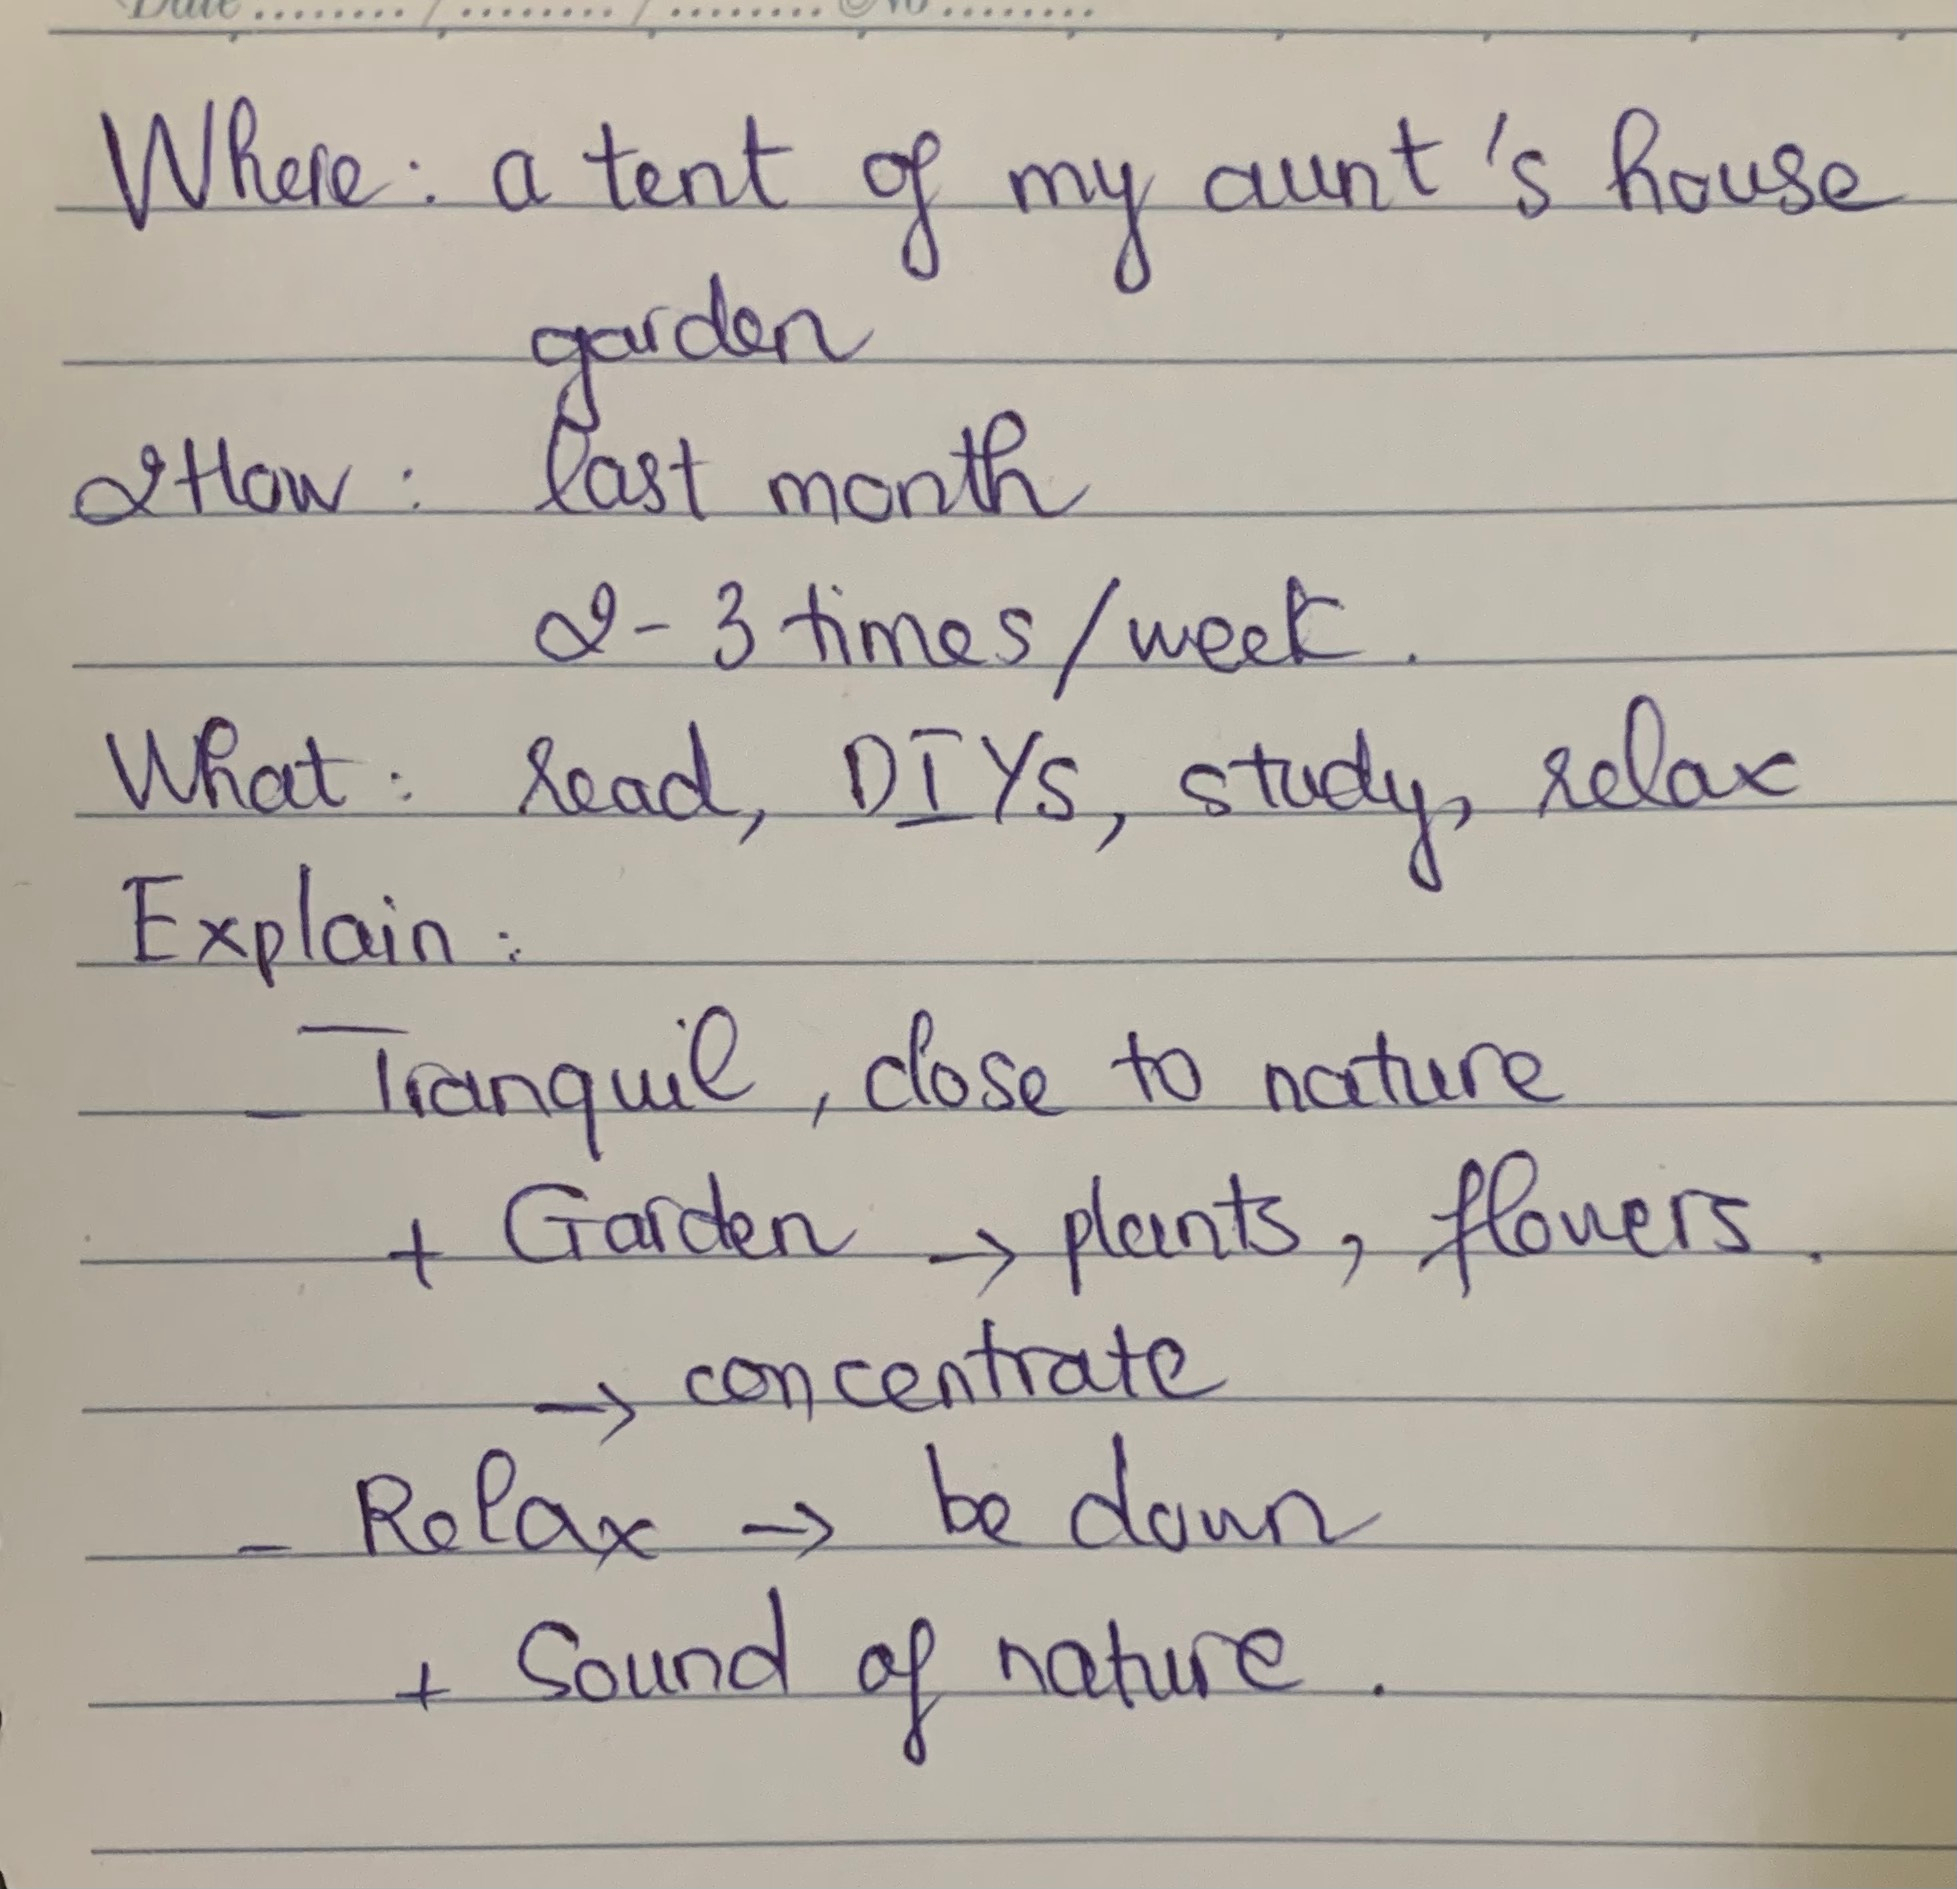 Date ........ / ........ / ........ No ........
Where: a tent of my aunt's house
garden
2How: last month
2-3 times/week.
What: read, DIYs, study, relax
Explain:
- Tranquil, close to nature
+ Garden → plants, flowers.
→ concentrate
- Relax → be down
+ Sound of nature.